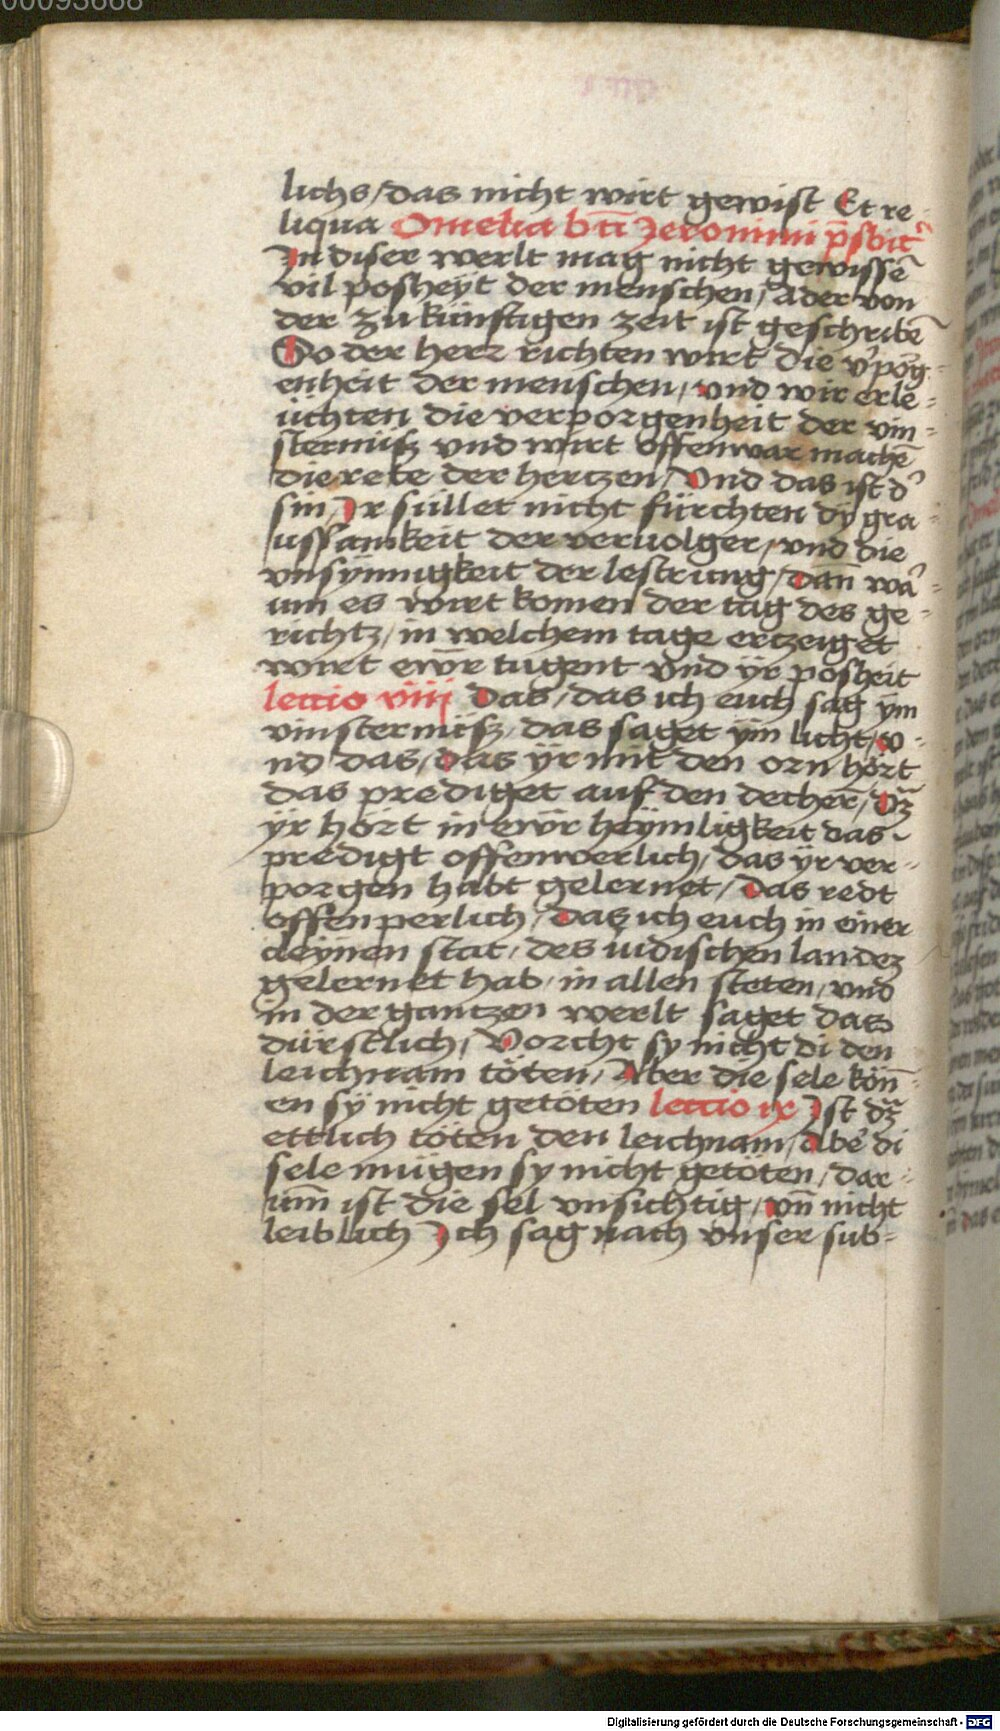 00093668
lichs / das nicht wirt gewist Et re-
liqua Omelia bti Jeronimi p̄sbit̉
In diser werlt mag nicht gewissē
vil posheÿt der menschen / Ader von
der zu künftigen zeit ist geschribē
So der herr richten wirt die v̉porg-
enheit der menschen / vnd wir erle-
üchten die verporgenheit der vin-
sternüsz vnd wirt offenwar machē
die rete der hertzen / Vnd das ist d̉
sin / Ir süllet nicht fürchten dÿ gra-
ussamkeit der veruolger / vnd die
vnsÿnnigkeit der lestrung / dan̄ wa̓-
um es wirt komen der tag des ge-
richtz / in welchem tage ertzeiget
wirt ewr̄ tugent vnd ÿr posheit
leccio viiij Das / das ich euch sag ÿm
vinsternüsz / das saget ÿm licht / v-
nd das / das ÿr mit den orn hört
das prediget auf den decherr̄ / Dz̄
ÿr hört in ewr̄ heÿmligkeit das
predigt offenwerlich / das ÿr ver-
porgen habt gelernet / Das redt
offenperlich / Das ich euch in einer
cleÿnen stat / des iudischen landez
gelernet hab / in allen steten / vnd
in der gantzen werlt saget das
dürstlich / Vorcht sy nicht di den
leichnam töten / Aber die sele kön̄-
en sÿ nicht getöten leccio ix Ist dz̄
ettlich töten den leichnam / Abe̓ di
sele mügen sy nicht getöten / dar-
um̄ ist die sel vnsichtig / vn̄ nicht
leiblich Ich sag nach vnser sub-
Digitalisierung gefördert durch die Deutsche Forschungsgemeinschaft - DFG